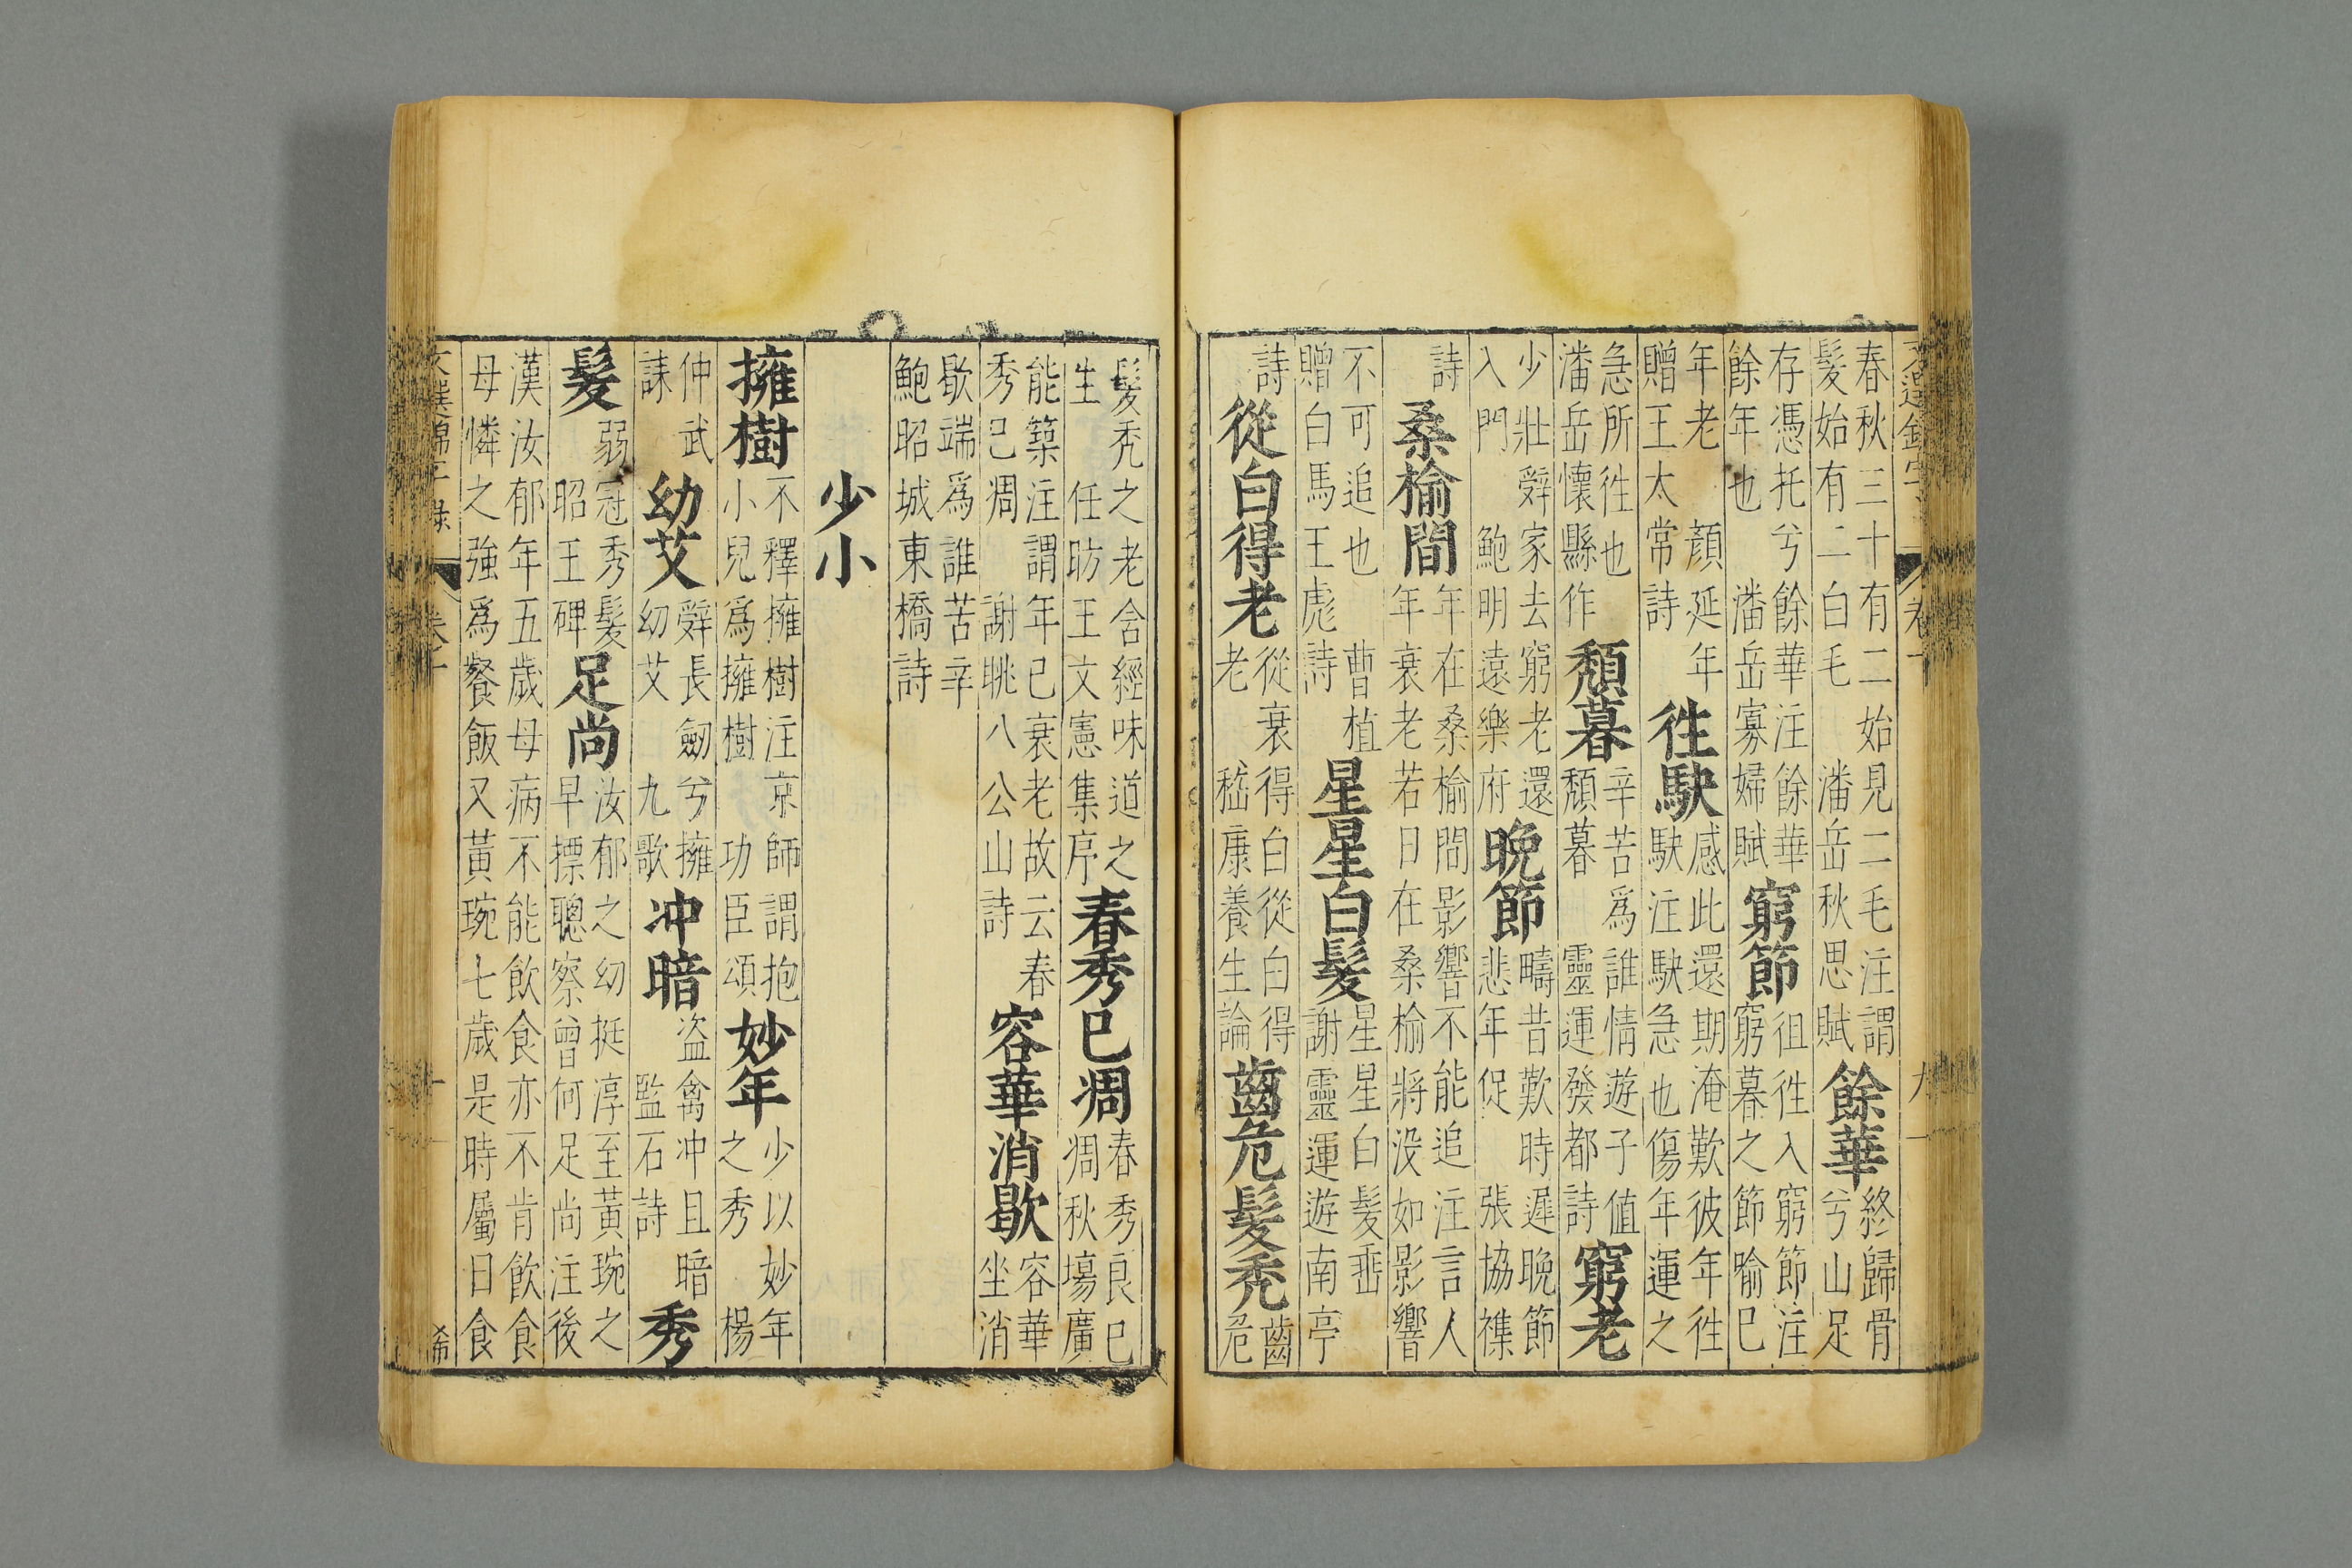 春秋三十有二始見二毛注謂
髮始有二白毛 潘岳秋思賦
餘華
終歸骨
兮山足
存憑托兮餘華注餘華
餘年也 潘岳寡婦賦
窮節
徂徃入窮節注
窮暮之節喻已
年老 顏延年
贈王太常詩
徃駃
感此還期淹歎彼年徃
駃注駃急也傷年運之
急所徃也
潘岳懷縣作
頽暮
辛苦爲誰情遊子值
頽暮 靈運發都詩
窮老
少壯辤家去窮老還
入門 鮑明遠樂府
晚節
疇昔歎時遲晚節
悲年促 張協襍
詩
桑榆間
年在桑榆間影響不能追注言人
年衰老若日在桑榆將没如影響
不可追也 曹植
贈白馬王彪詩
星星白髮
星星白髮垂
謝靈運遊南亭
詩
從白得老
從衰得白從白得
老 嵇康養生論
齒危髮秃
齒
危
髮秃之老含經味道之
生 任昉王文憲集序
春秀已凋
春秀良已
凋秋塲廣
能築注謂年已衰老故云春
秀已凋 謝眺八公山詩
容華消歇
容華
坐消
歇端爲誰苦辛
鮑昭城東橋詩
少小
擁樹
不釋擁樹注京師謂抱
小兒爲擁樹 功臣頌
妙年
少以妙年
之秀 楊
仲武
誄
幼艾
辤長劒兮擁
幼艾 九歌
冲暗
盗禽冲且暗
監石詩
秀
髮
弱冠秀髮
昭王碑
足尚
汝郁之幼挺淳至黃琬之
早摽聰察曾何足尚注後
漢汝郁年五歲母病不能飲食亦不肯飲食
母憐之強爲餐飯又黃琬七歲是時屬日食